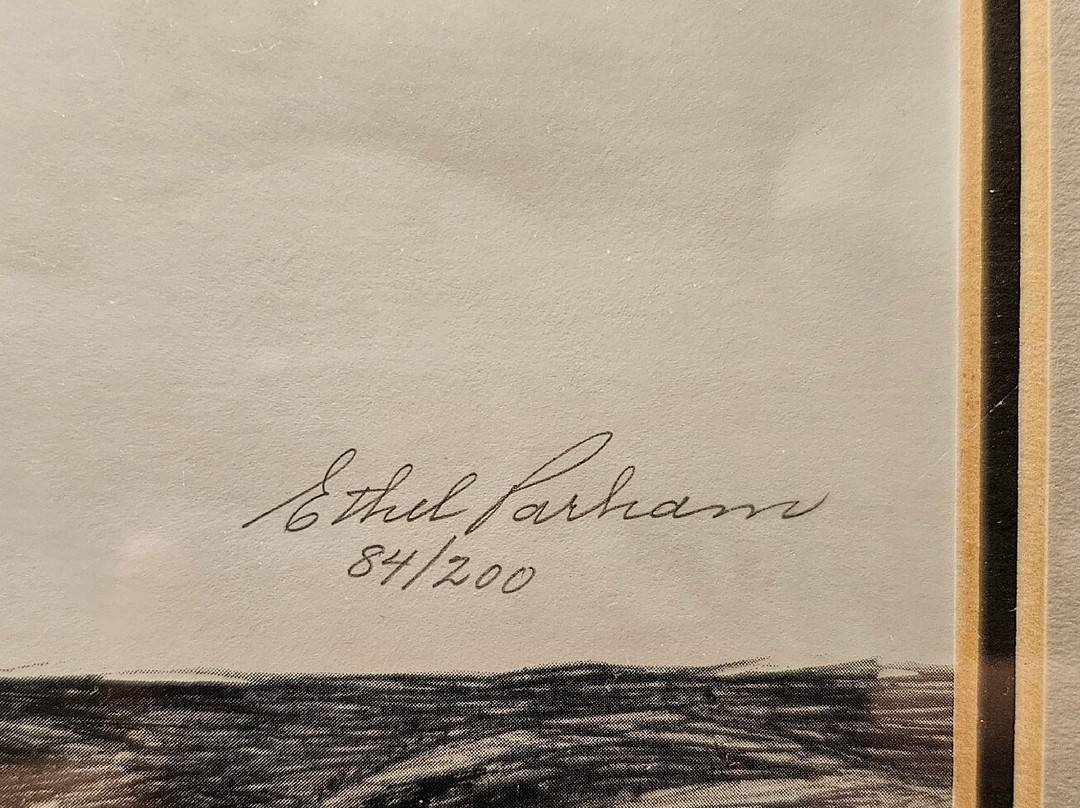 Ethel Parham
84/200